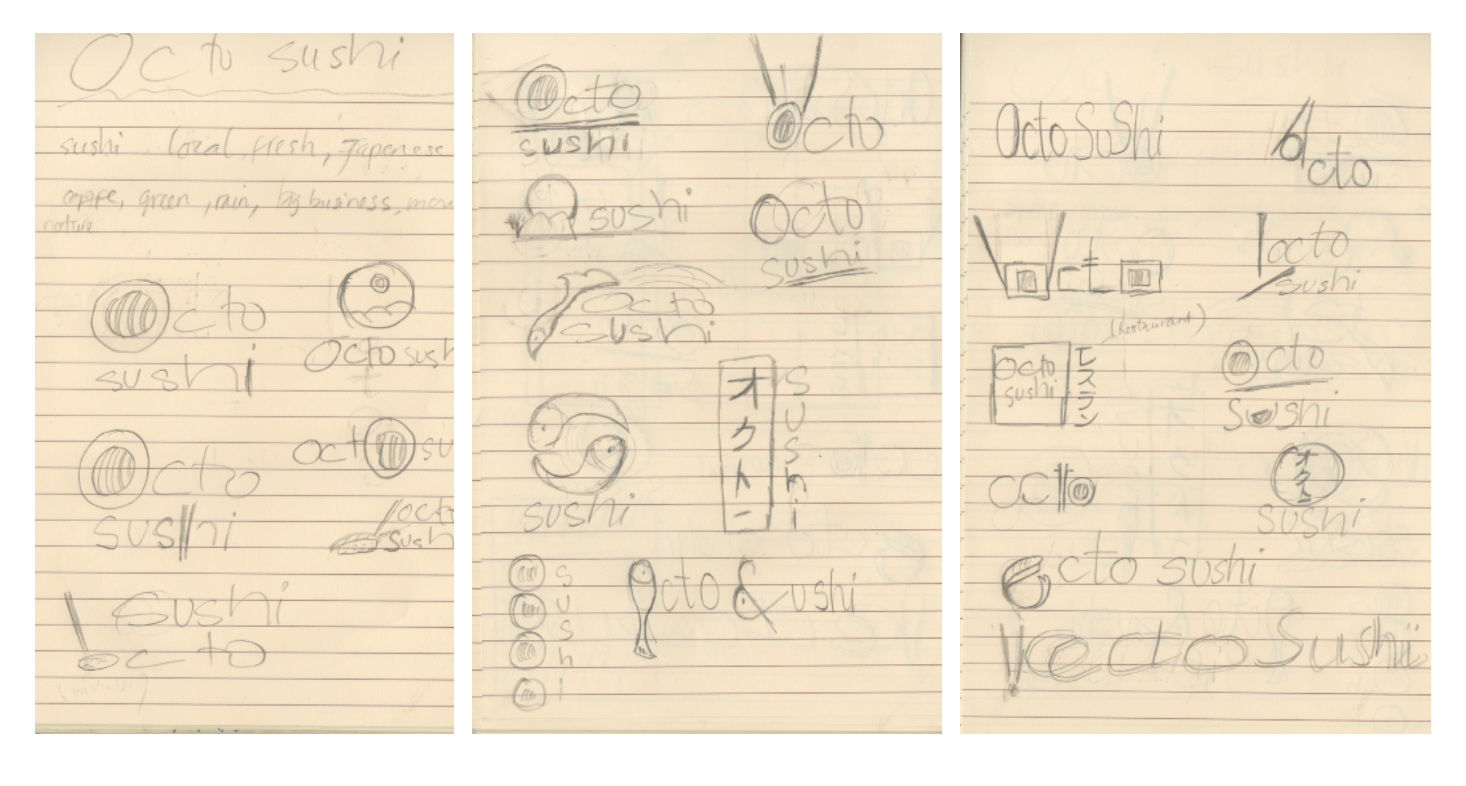 Octo sushi
sushi local, fresh, Japanese
green, rain, big business,
nature
Octo
sushi
Octo sush
Octo
sushi
octo su
octo
sush
sushi
octo
Octo
sushi
Octo
sushi
Octo
sushi
Octo
sushi
sushi
オクトニ
sushi
sushi
Octo Sushi
Octo Sushi
Octo
octo
octo
sushi
(Restaurant)
Octo
sushi
レスラン
Octo
Sushi
octo
オクトニ
sushi
Octo sushi
octo Sushi